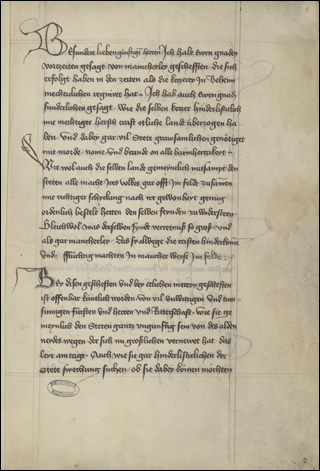 Besundere lieben günstigen herren Ich habe ewrn gnaden
vorczeiten gesagt von mancherley geschefften die sich
erfolgt haben in den zeiten als die keczer in Behem
mechticlichen regniret hat Ich hab auch ewrn gnad
sunderlichen gesagt Wie die selben keczer hinderlistiklich
mit mechtiger herschraft etliche land überzogen ha
ben Vnd dabey gar vil Stete grawsamlichen genötiget
mit morde nome vnd brande on alle barmherczikeit
Wie wol auch die selben lande gemeinlich mitsampt den
steten alle macht Ires volkes gar offt Im felde zusamen
mit richtiger schickung nach irer gewonheit genüg
ordenlich bestelt hetten den selben feynden zu widersteen
Gleichwol was derselben feynde so groß vnd
als gar mancherley Das sy albege die
vnd flüchtig machten In mancher weyse Im felde
Bey disen geschefften vnd bey etlichen mereren geschefften
ist offenbar küntlich worden von vil vnwittigen vnd
Fürsten vnd herren vnd Ritterschaft wie sie ge
meynlich den Steten gancz vngünstig sein von des alden
neydes wegen der sich nu großlichen vernewet hat das
leyt am tage Auch wie sie gar hinderlistiklichen der
Stete swechung suchen ob sie dabey komen möchten